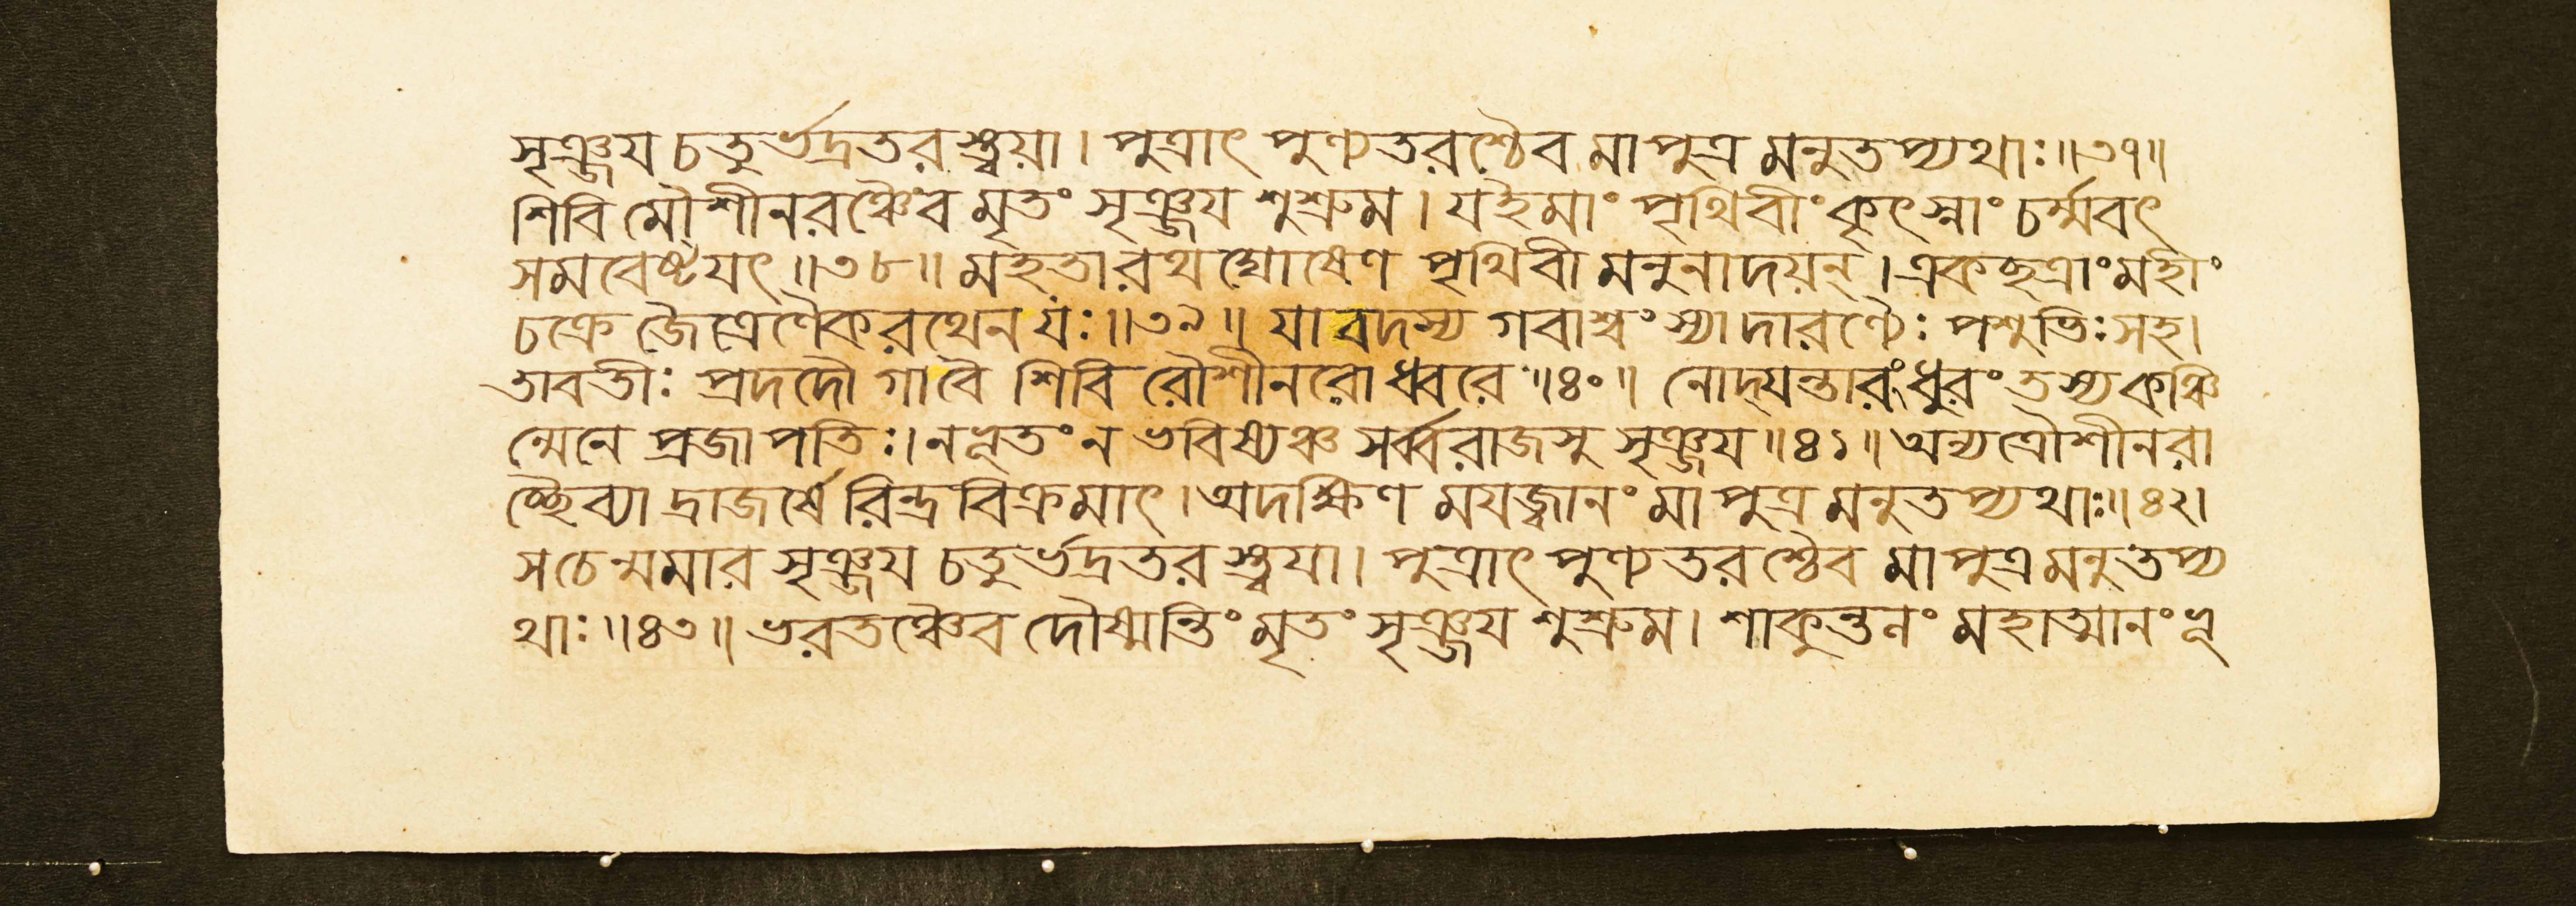 সৃঞ্জয চতুর্ভদ্রতরস্ত্বয়া। পুত্রাৎ পুণ্যতরশ্চৈব মা পুত্র মনুতপ্যথাঃ॥৩৭॥
শিবি মৌশীনরঞ্চৈব মৃতং সৃঞ্জয শুশ্রুম। য ইমাং পৃথিবীং কৃৎস্নাং চর্ম্মবৎ
সমবেষ্টযৎ॥৩৮॥ মহতা রথ ঘোষেণ পৃথিবী মনুনাদয়ন্। একছত্রাং মহীং
চক্রে জৈত্রেণৈকরথেন যঃ॥৩৯॥ যাবদস্য গবাশ্বং স্যাদারণ্যৈঃ পশুভিঃ সহ।
তাবতীঃ প্রদদৌ গাবৈ শিবি রৌশীনরোধ্বরে॥৪০॥ নোদ্যন্তারং ধুরং তস্য কঞ্চি
ন্মেনে প্রজাপতিঃ। ন ভূতং ন ভবিষ্যঞ্চ সর্ব্বরাজসু সৃঞ্জয॥৪১॥ অন্যত্রৌশীনরা
চ্ছৈব্যা দ্রাজর্ষে রিন্দ্রবিক্রমাৎ। অদক্ষিণ মযজ্বানং মা পুত্র মনুতপ্যথাঃ॥৪২।
স চেন্মমার সৃঞ্জয চতুর্ভদ্রতরস্ত্বয়া। পুত্রাৎ পুণ্যতরশ্চৈব মা পুত্র মনুতপ্য
থাঃ॥৪৩॥ ভরতঞ্চৈব দৌষ্মন্তিং মৃতং সৃঞ্জয শুশ্রুম। শাকুন্তলং মহাত্মানং ভূ